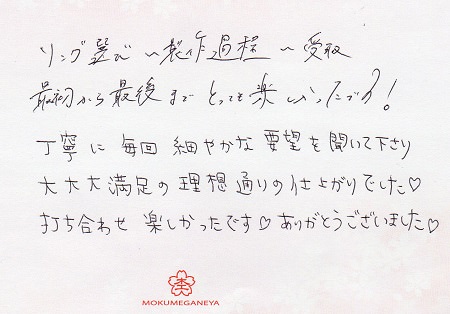 リング選び〜製作過程〜受取
最初から最後までとっても楽しかったです!
丁寧に毎回細やかな要望を聞いて下さり
大大大満足の理想通りの仕上がりでした♡
打ち合わせ楽しかったです♡ありがとうございました♡
杢
MOKUMEGANEYA